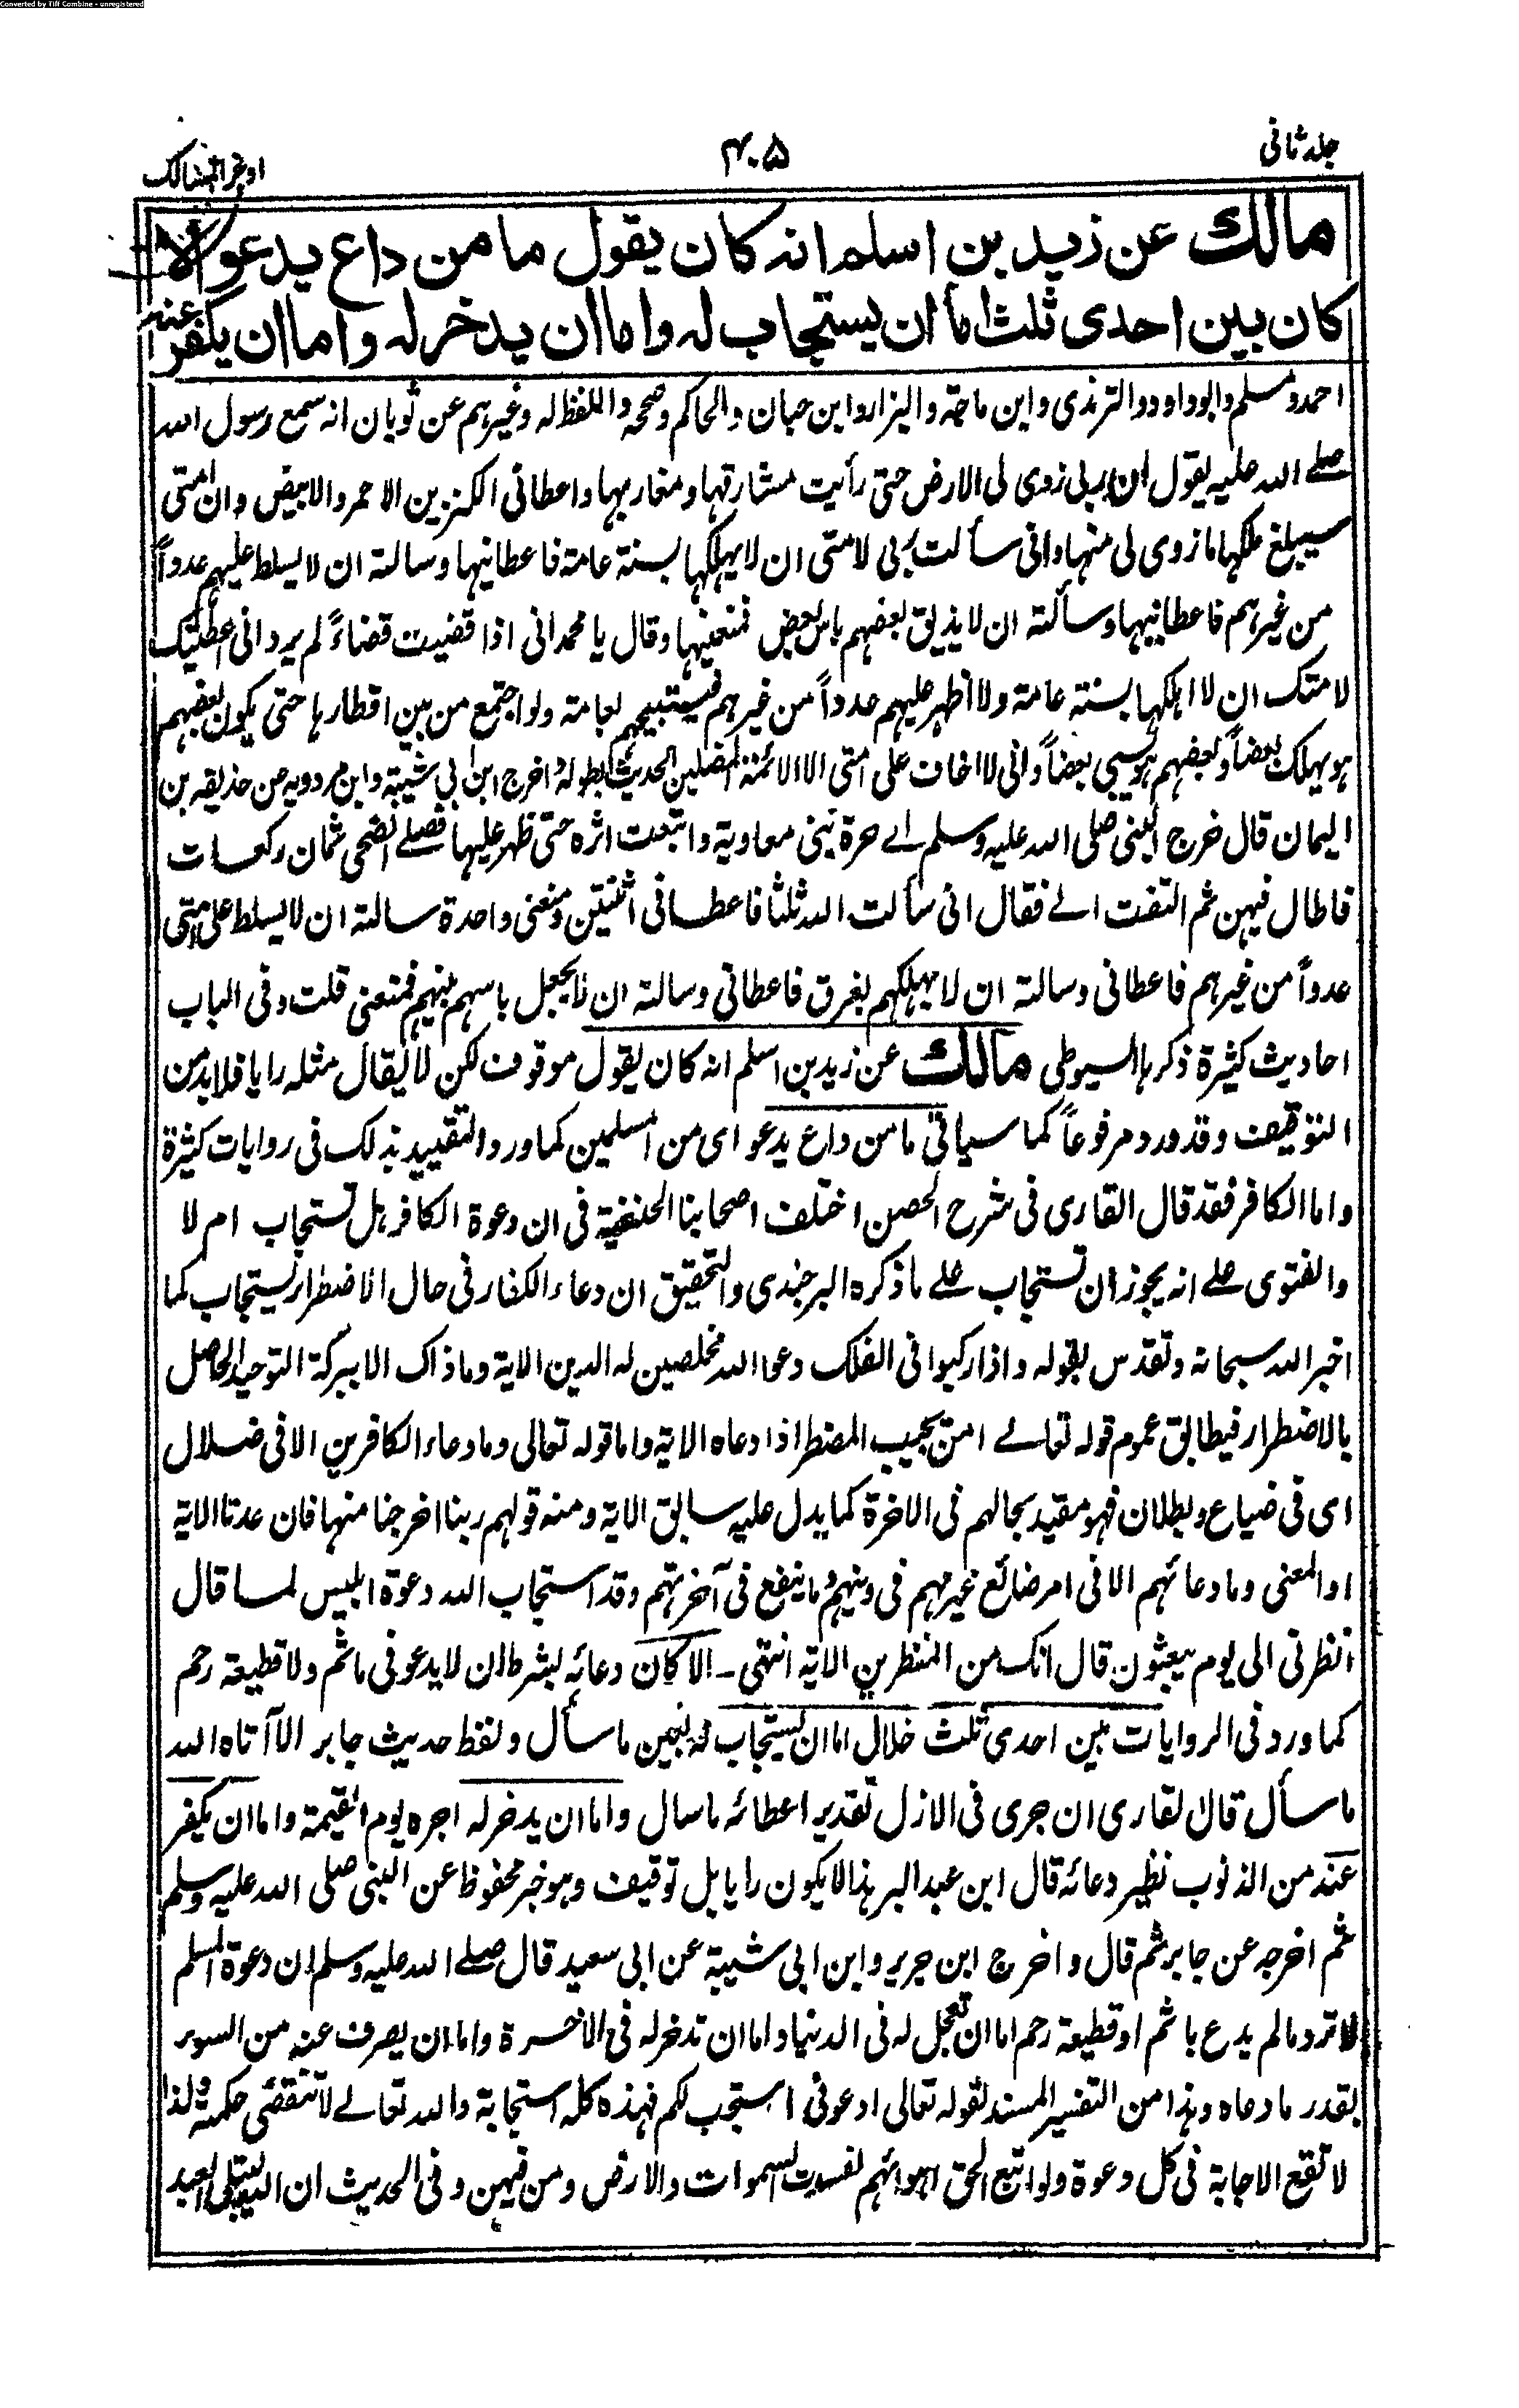 Converted by Tiff Combine - unregistered
جلد ثانی
۴۰۵
اوجز المسالك
مالك عن زيد بن اسلم انه كان يقول ما من داع يدعو الا
كان بين احدى ثلث اما ان يستجاب له واما ان يدخر له واما ان يكفر عنه
احمد ومسلم وابو داود والترمذى وابن ماجة والبزار وابن حبان والحاكم وصححه واللفظ له وغيرهم عن ثوبان انه سمع رسول الله
صلے الله عليه يقول ان ربى زوى لى الارض حتى رأيت مشارقها ومغاربها واعطانى الكنزين الاحمر والابيض وان امتى
سيبلغ ملكها ما زوى لى منها وانى سألت ربى لامتى ان لا يهلكها بسنة عامة فاعطانيها وسالته ان لا يسلط عليهم عدواً
من غيرهم فاعطانيها وسألته ان لا يذيق بعضهم باس بعض فمنعنيها وقال يا محمد انى اذا قضيت قضاءً لم يرد انى اعطيتك
لامتك ان لا اهلكها بسنة عامة ولا اظهر عليهم عدواً من غيرهم فيستبيحهم بعامة ولو اجتمع من بين اقطارها حتى يكون بعضهم
هو يهلك بعضاً وبعضهم هو يسبى بعضاً وانى لا اخاف على امتى الا الائمة المضلين الحديث بطوله واخرج ابن ابى شيبة وابن مردويه عن حذيفة بن
اليمان قال خرج النبى صلى الله عليه وسلم الے حرة بنى معاوية واتبعت اثره حتى ظهر عليها فصلے الضحى ثمان ركعات
فاطال فيهن ثم التفت الے فقال انى سألت الله ثلثا فاعطانى اثنتين ومنعنى واحدة سالته ان لا يسلط على امتى
عدواً من غيرهم فاعطانى وسالته ان لا يهلكهم بغرق فاعطانى وسالته ان لا يجعل باسهم بينهم فمنعنى قلت وفى الباب
احاديث كثيرة ذكرها السيوطى مالك عن زيد بن اسلم انه كان يقول موقوف لكن لا يقال مثله رايا فلا بد من
التوقيف وقد ورد مرفوعاً كما سياتى ما من داع يدعو اى من المسلمين كما ورد التقييد بذلك فى روايات كثيرة
واما الكافر فقد قال القارى فى شرح الحصن اختلف اصحابنا الحنفية فى ان دعوة الكافر هل تستجاب ام لا
والفتوى علے انه يجوز ان تستجاب علے ما ذكره البرجندى والتحقيق ان دعاء الكفار فى حال الاضطرار يستجاب كما
اخبر الله سبحانه وتقدس بقوله واذا ركبوا فى الفلك دعوا الله مخلصين له الدين الاية وما ذاك الا ببركة التوحيد الحاصل
بالاضطرار فيطابق عموم قوله تعالے امن يجيب المضطر اذا دعاه الاية واما قوله تعالى وما دعاء الكافرين الا فى ضلال
اى فى ضياع وبطلان فهو مقيد بحالهم فى الاخرة كما يدل عليه سابق الاية ومنه قولهم ربنا اخرجنا منها فان عدنا الاية
او المعنى وما دعائهم الا فى امر ضائع غير مهم فى دينهم وما ينفع فى آخرتهم وقد استجاب الله دعوة ابليس لما قال
انظرنى الى يوم يبعثون قال انك من المنظرين الاية انتهى ـ الا كان دعائه بشرط ان لا يدعو فى ماثم ولا قطيعة رحم
كما ورد فى الروايات بين احدى ثلث خلال اما ان يستجاب له بعين ما سأل ولفظ حديث جابر الا آتاه الله
ما سأل قال القارى ان جرى فى الازل تقدير اعطائه ما سال واما ان يدخر له اجره يوم القيمة واما ان يكفر
عنه من الذنوب نظير دعائه قال ابن عبد البر هذا لا يكون رايا بل توقيف وهو خبر محفوظ عن النبى صلى الله عليه وسلم
ثم اخرجه عن جابر ثم قال واخرج ابن جرير وابن ابى شيبة عن ابى سعيد قال صلے الله عليه وسلم ان دعوة المسلم
لا ترد مالم يدع باثم او قطيعة رحم اما ان تعجل له فى الدنيا واما ان تدخر له فى الاخرة واما ان يصرف عنه من السوء
بقدر ما دعاه وهذا من التفسير المسند لقوله تعالى ادعونى استجب لكم فهذه كله استجابة والله تعالے لا تنقضى حكمته ولذا
لا تقع الاجابة فى كل دعوة ولو اتبع الحق اهوائهم لفسدت السموات والارض ومن فيهن وفى الحديث ان الله يبتلى العبد